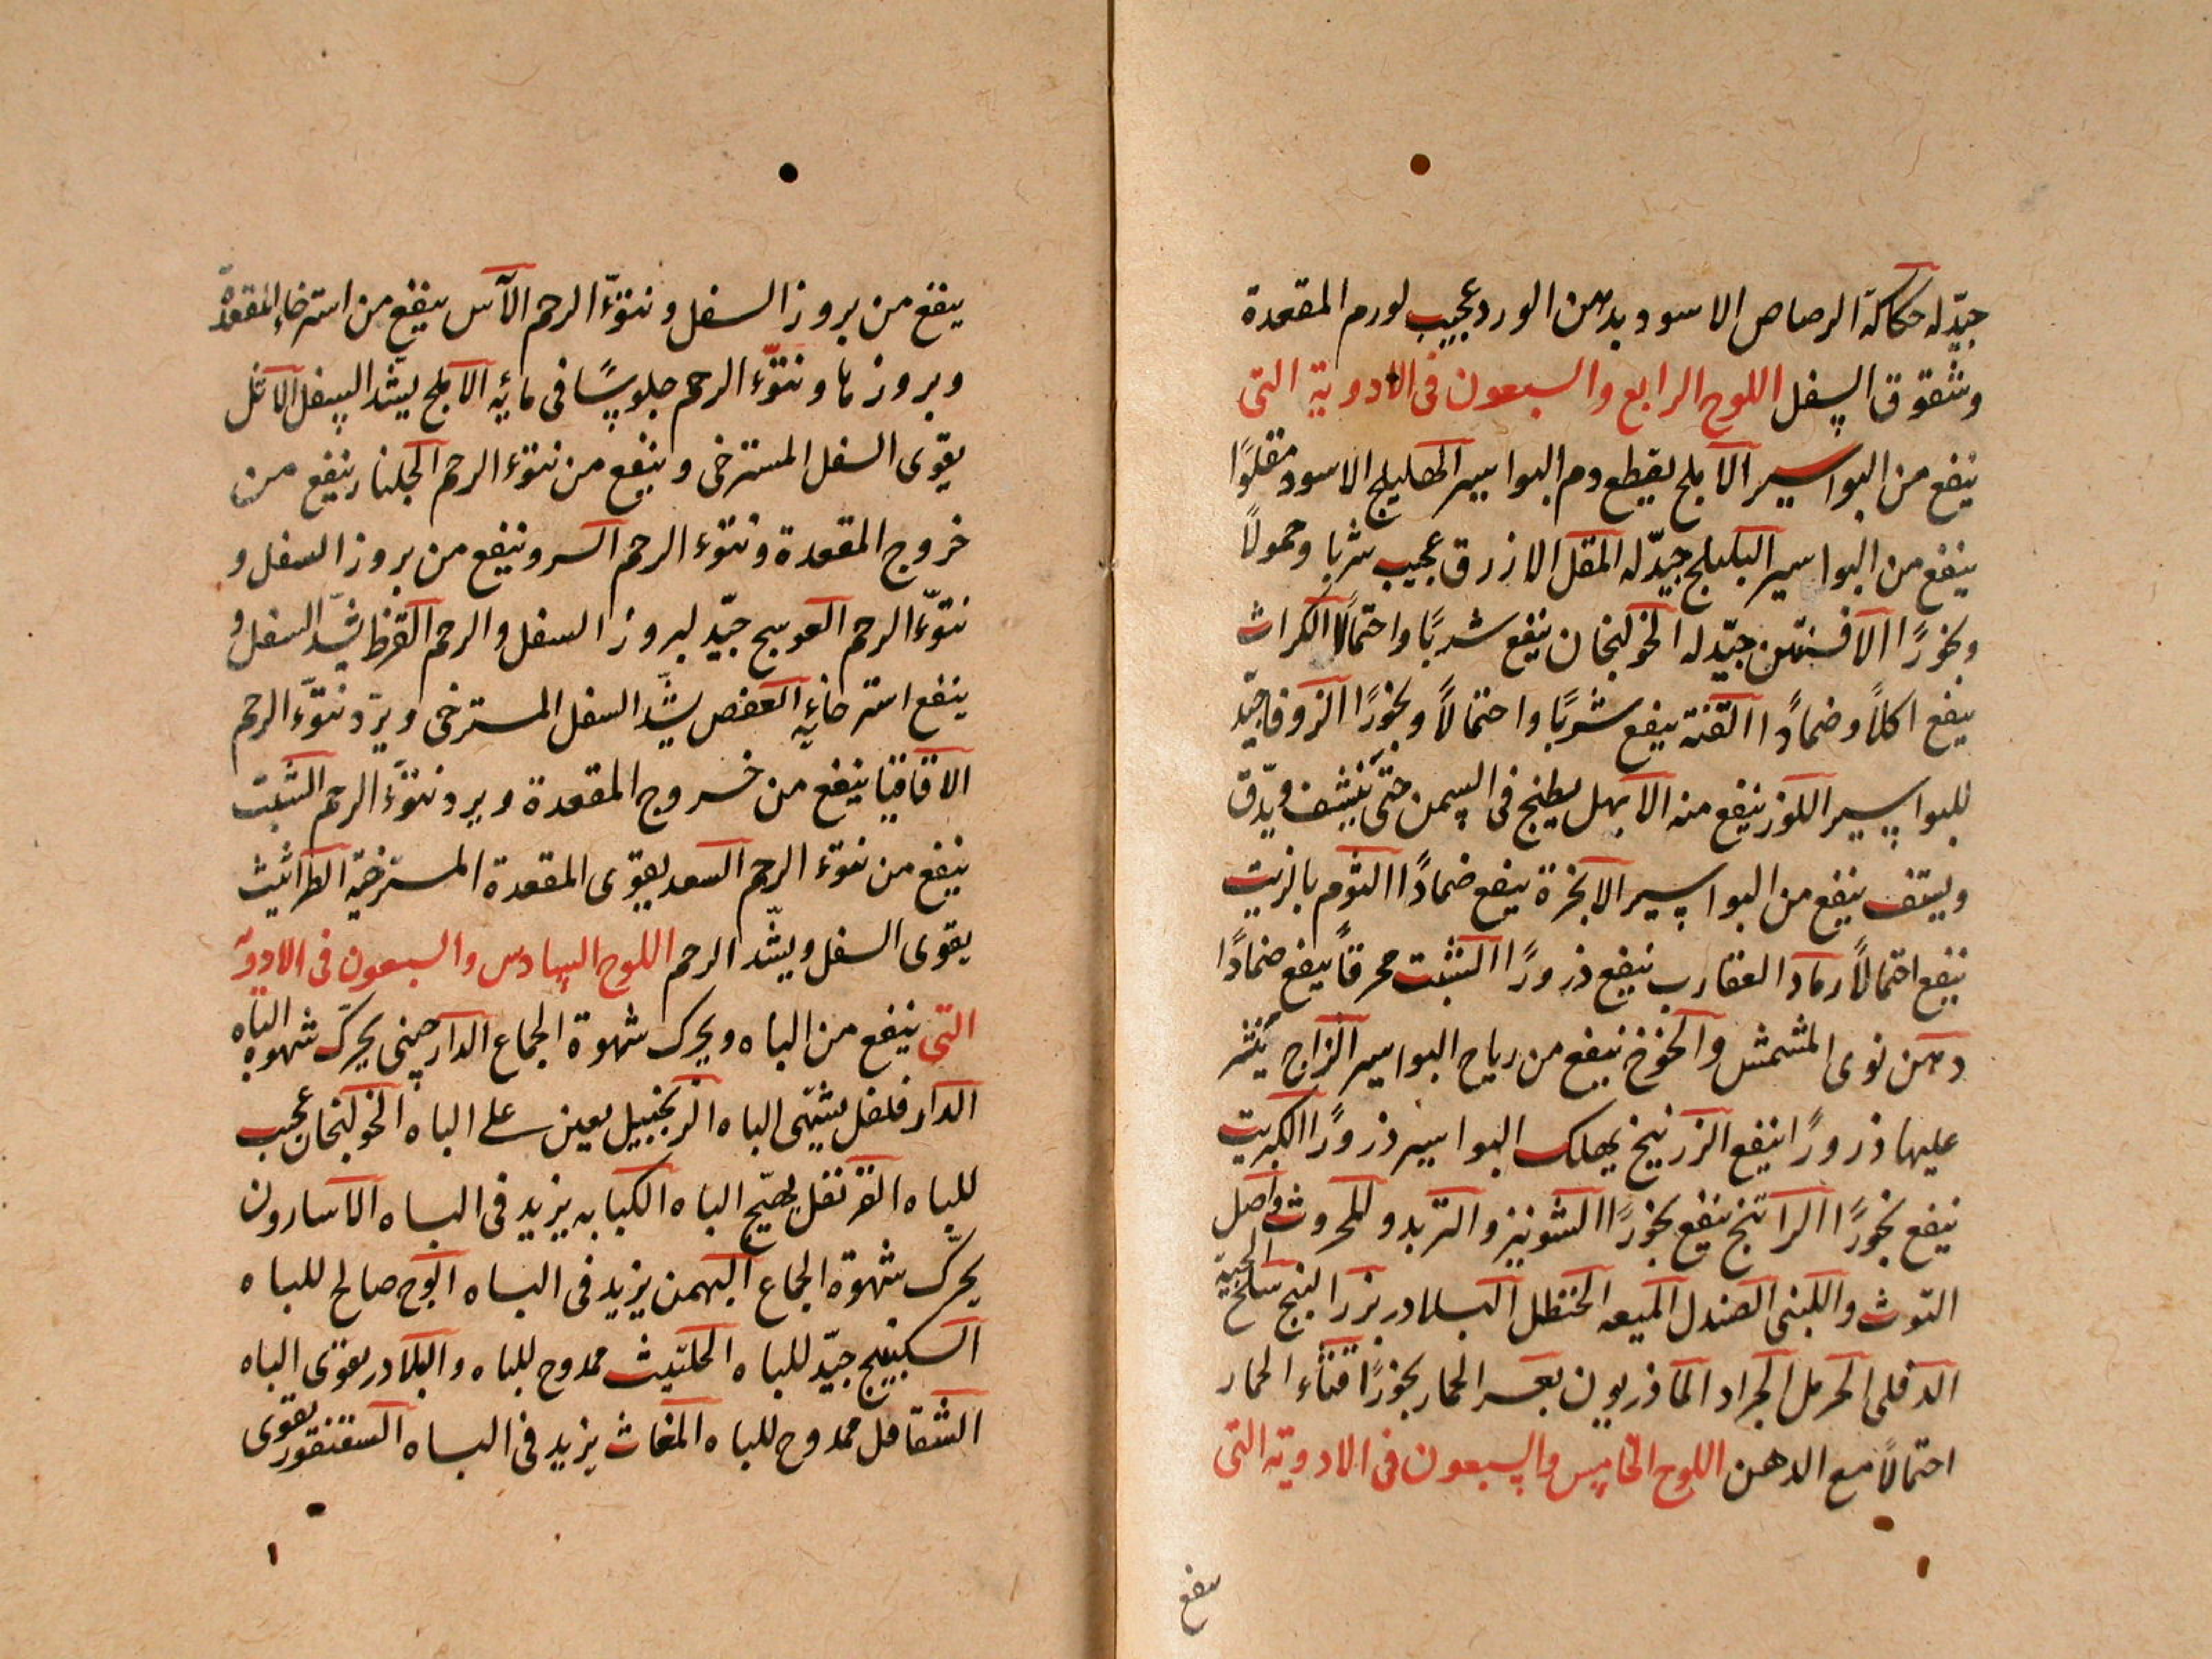 جيّد له حكاكة الرصاص الاسود بدهن الورد عجيب لورم المقعدة
وشقوق السفل اللوح الرابع والسبعون فى الادوية التى
ينفع من البواسير الابلج يقطع دم البواسير الهليلج الاسود مقلوًا
ينفع من البواسير البليلج جيّد له المقل الازرق عجيب شربا وحمولًا
وبخورًا الافسنتين جيّد له الخولنجان ينفع شربًا واحتمالًا الكراث
ينفع اكلًا وضمادًا القنة ينفع شربًا واحتمالًا وبخورًا الزوفا جيّد
للبواسير اللوز ينفع منه الابهل يطبخ فى السمن حتى ينشف ويدّق
ويستف ينفع من البواسير الانجرة ينفع ضمادًا الثوم بالزيت
ينفع احتمالًا رماد العقارب ينفع ذرورًا الشبت محرقًا ينفع ضمادًا
دهن نوى المشمش والخوخ ينفع من رياح البواسير الزاج ينثر
عليها ذرورًا ينفع الزرنيخ يهلك البواسير ذرورًا الكبريت
ينفع بخورًا الراتنج ينفع بخورًا الشونيز والتربد والمحروث واصل
التوث واللبنى الصندل الميعه الحنظل البلادر بزر البنج سلخ الحية
الدفلى الحرمل الجراد الماذريون بعر الحمار بخورًا قثاء الحمار
احتمالًا مع الدهن اللوح الخامس والسبعون فى الادوية التى
ينفع
ينفع من بروز السفل ونتوّء الرحم الآس ينفع من استرخاء المقعدة
وبروزها ونتوّء الرحم جلوسًا فى مائه الابلج يشد السفل الاثل
يقوى السفل المسترخى وينفع من نتوء الرحم الجلنار ينفع من
خروج المقعدة ونتوء الرحم السرو ينفع من بروز السفل و
نتوّء الرحم العوسج جيّد لبروز السفل والرحم القرظ يشدّ السفل و
ينفع استرخائه العفص يشدّ السفل المسترخى ويردّ نتوّء الرحم
الاقاقيا ينفع من خروج المقعدة ويرد نتوّء الرحم الشبت
ينفع من نتوء الرحم السعد يقوى المقعدة المسترخية الطراثيث
يقوى السفل ويشّد الرحم اللوح السادس والسبعون فى الادوية
التى ينفع من الباه ويحرك شهوة الجماع الدارصينى يحرّك شهوة الباه
الدارفلفل يشهّى الباه الزنجبيل يعين على الباه الخولنجان عجيب
للباه القرنفل يهيّج الباه الكبابه يزيد فى الباه الاسارون
يحرّك شهوة الجماع البهمن يزيد فى الباه الوج صالح للباه
السكبينج جيّد للباه الحلتيث ممدوح للباه والبلادر يقوى الباه
الشقاقل ممدوح للباه المغاث يزيد فى الباه السقنقور يقوى